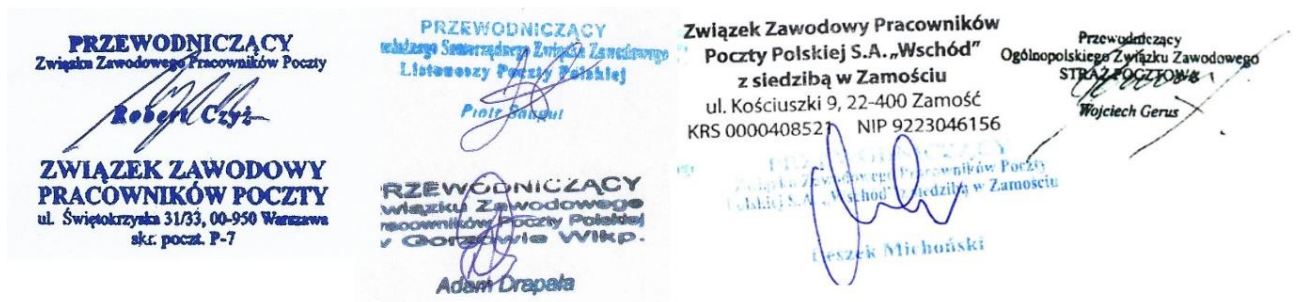 PRZEWODNICZĄCY
Związku Zawodowego Pracowników Poczty
Robert Czyż
ZWIĄZEK ZAWODOWY
PRACOWNIKÓW POCZTY
ul. Świętokrzyska 31/33, 00-950 Warszawa
skr. poczt. P-7
PRZEWODNICZĄCY
Związku Zawodowego
Listonoszy Poczty Polskiej
Piotr
RZEWODNICZĄCY
wiązku Zawodowego
racowników Poczty Polskiej
w Gorzowie Wlkp.
Adam Drapała
Związek Zawodowy Pracowników
Poczty Polskiej S.A. „Wschód”
z siedzibą w Zamościu
ul. Kościuszki 9, 22-400 Zamość
KRS 0000408521 NIP 9223046156
PRZEWODNICZĄCY
Związku Zawodowego Pracowników Poczty
Polskiej S.A. „Wschód” z siedzibą w Zamościu
Leszek Michoński
Przewodniczący
Ogólnopolskiego Związku Zawodowego
STRAŻ POCZTOWA
Wojciech Gerus